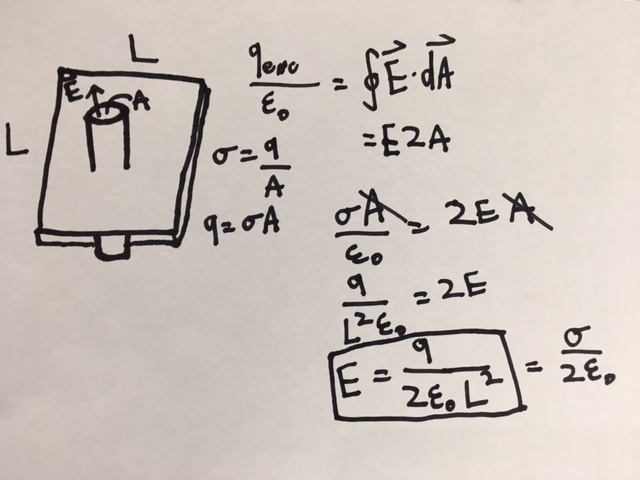 L
L
E
A
q_enc/ε₀ = ∮E⃗·dA⃗
= E2A
σ = q/A
q = σA
σA/ε₀ = 2EA
q/L²ε₀ = 2E
E = q/2ε₀L² = σ/2ε₀